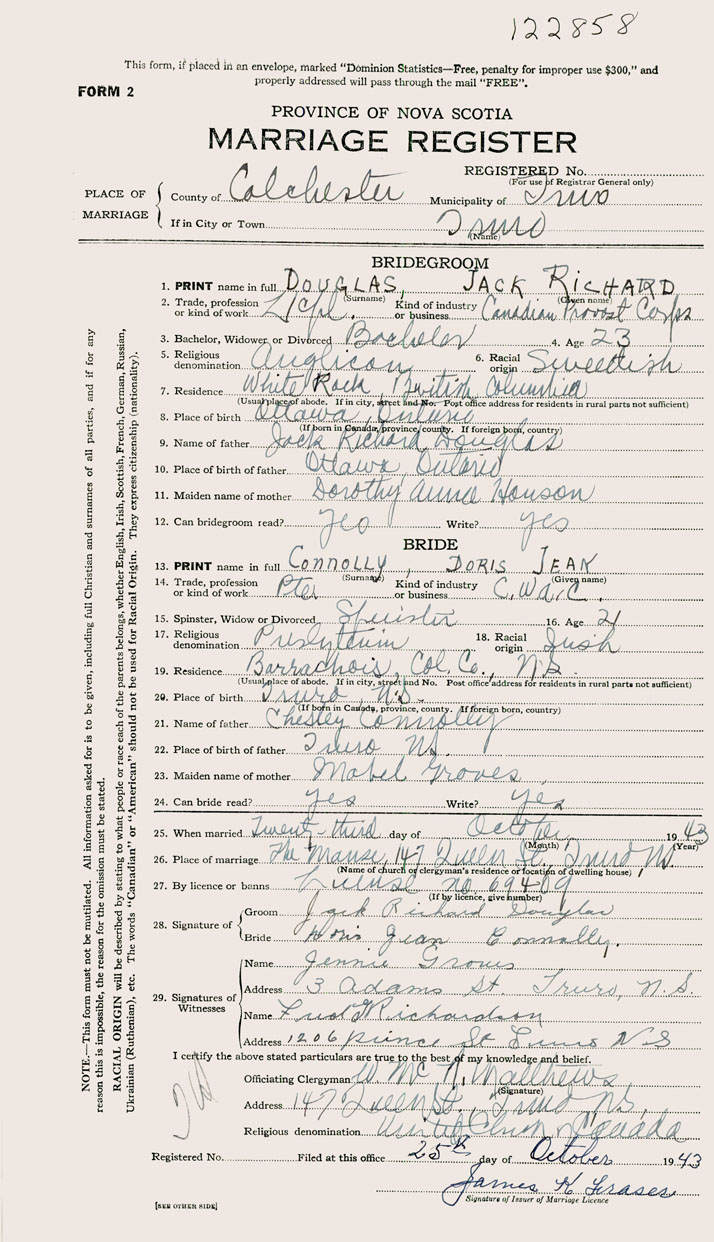 122858
This form, if placed in an envelope, marked "Dominion Statistics—Free, penalty for improper use $300," and
properly addressed will pass through the mail "FREE".
FORM 2
PROVINCE OF NOVA SCOTIA
MARRIAGE REGISTER
REGISTERED No.
(For use of Registrar General only)
PLACE OF MARRIAGE
County of Colchester Municipality of Truro
If in City or Town Truro
(Name)
BRIDEGROOM
1. PRINT name in full DOUGLAS, JACK RICHARD
(Surname) (Given name)
2. Trade, profession or kind of work L/Cpl. Kind of industry or business Canadian Provost Corps
3. Bachelor, Widower or Divorced Bachelor 4. Age 23
5. Religious denomination Anglican 6. Racial origin Sweedish
7. Residence White Rock, British Columbia
(Usual place of abode. If in city, street and No. Post office address for residents in rural parts not sufficient)
8. Place of birth Ottawa, Ontario
(If born in Canada, province, county. If foreign born, country)
9. Name of father Jack Richard Douglas
10. Place of birth of father Ottawa, Ontario
11. Maiden name of mother Dorothy Anna Houson
12. Can bridegroom read? Yes Write? Yes
BRIDE
13. PRINT name in full CONNOLLY, DORIS JEAN
(Surname) (Given name)
14. Trade, profession or kind of work Pte. Kind of industry or business C.W.A.C.
15. Spinster, Widow or Divorced Spinster 16. Age 21
17. Religious denomination 18. Racial origin Irish
19. Residence Barrachois, Col. Co., N.S.
(Usual place of abode. If in city, street and No. Post office address for residents in rural parts not sufficient)
20. Place of birth Truro, N.S.
(If born in Canada, province, county. If foreign born, country)
21. Name of father Chesley Connolly
22. Place of birth of father Truro N.S.
23. Maiden name of mother Mabel Groves
24. Can bride read? yes Write? yes
25. When married Twenty-third day of October 1943
(Month) (Year)
26. Place of marriage The Manse, 147 Queen St., Truro NS
(Name of church or clergyman's residence or location of dwelling house)
27. By licence or banns License no. 69409
(If by licence, give number)
28. Signature of
Groom Jack Richard Douglas
Bride Doris Jean Connolly.
29. Signatures of Witnesses
Name Jennie Groves
Address 3 Adams St Truro, N.S.
Name Fred Richardson
Address 1206 Prince St Truro N S
I certify the above stated particulars are true to the best of my knowledge and belief.
Officiating Clergyman Matthews
(Signature)
Address 147 Queen St., Truro N.S.
Religious denomination United Church of Canada
Registered No. Filed at this office 25th day of October 1943
James K Fraser
Signature of Issuer of Marriage Licence
[SEE OTHER SIDE]
NOTE.—This form must not be mutilated. All information asked for is to be given, including full Christian and surnames of all parties, and if for any
reason this is impossible, the reason for the omission must be stated.
RACIAL ORIGIN will be described by stating to what people or race each of the parents belongs, whether English, Irish, Scottish, French, German, Russian,
Ukrainian (Ruthenian), etc. The words "Canadian" or "American" should not be used for Racial Origin. They express citizenship (nationality).